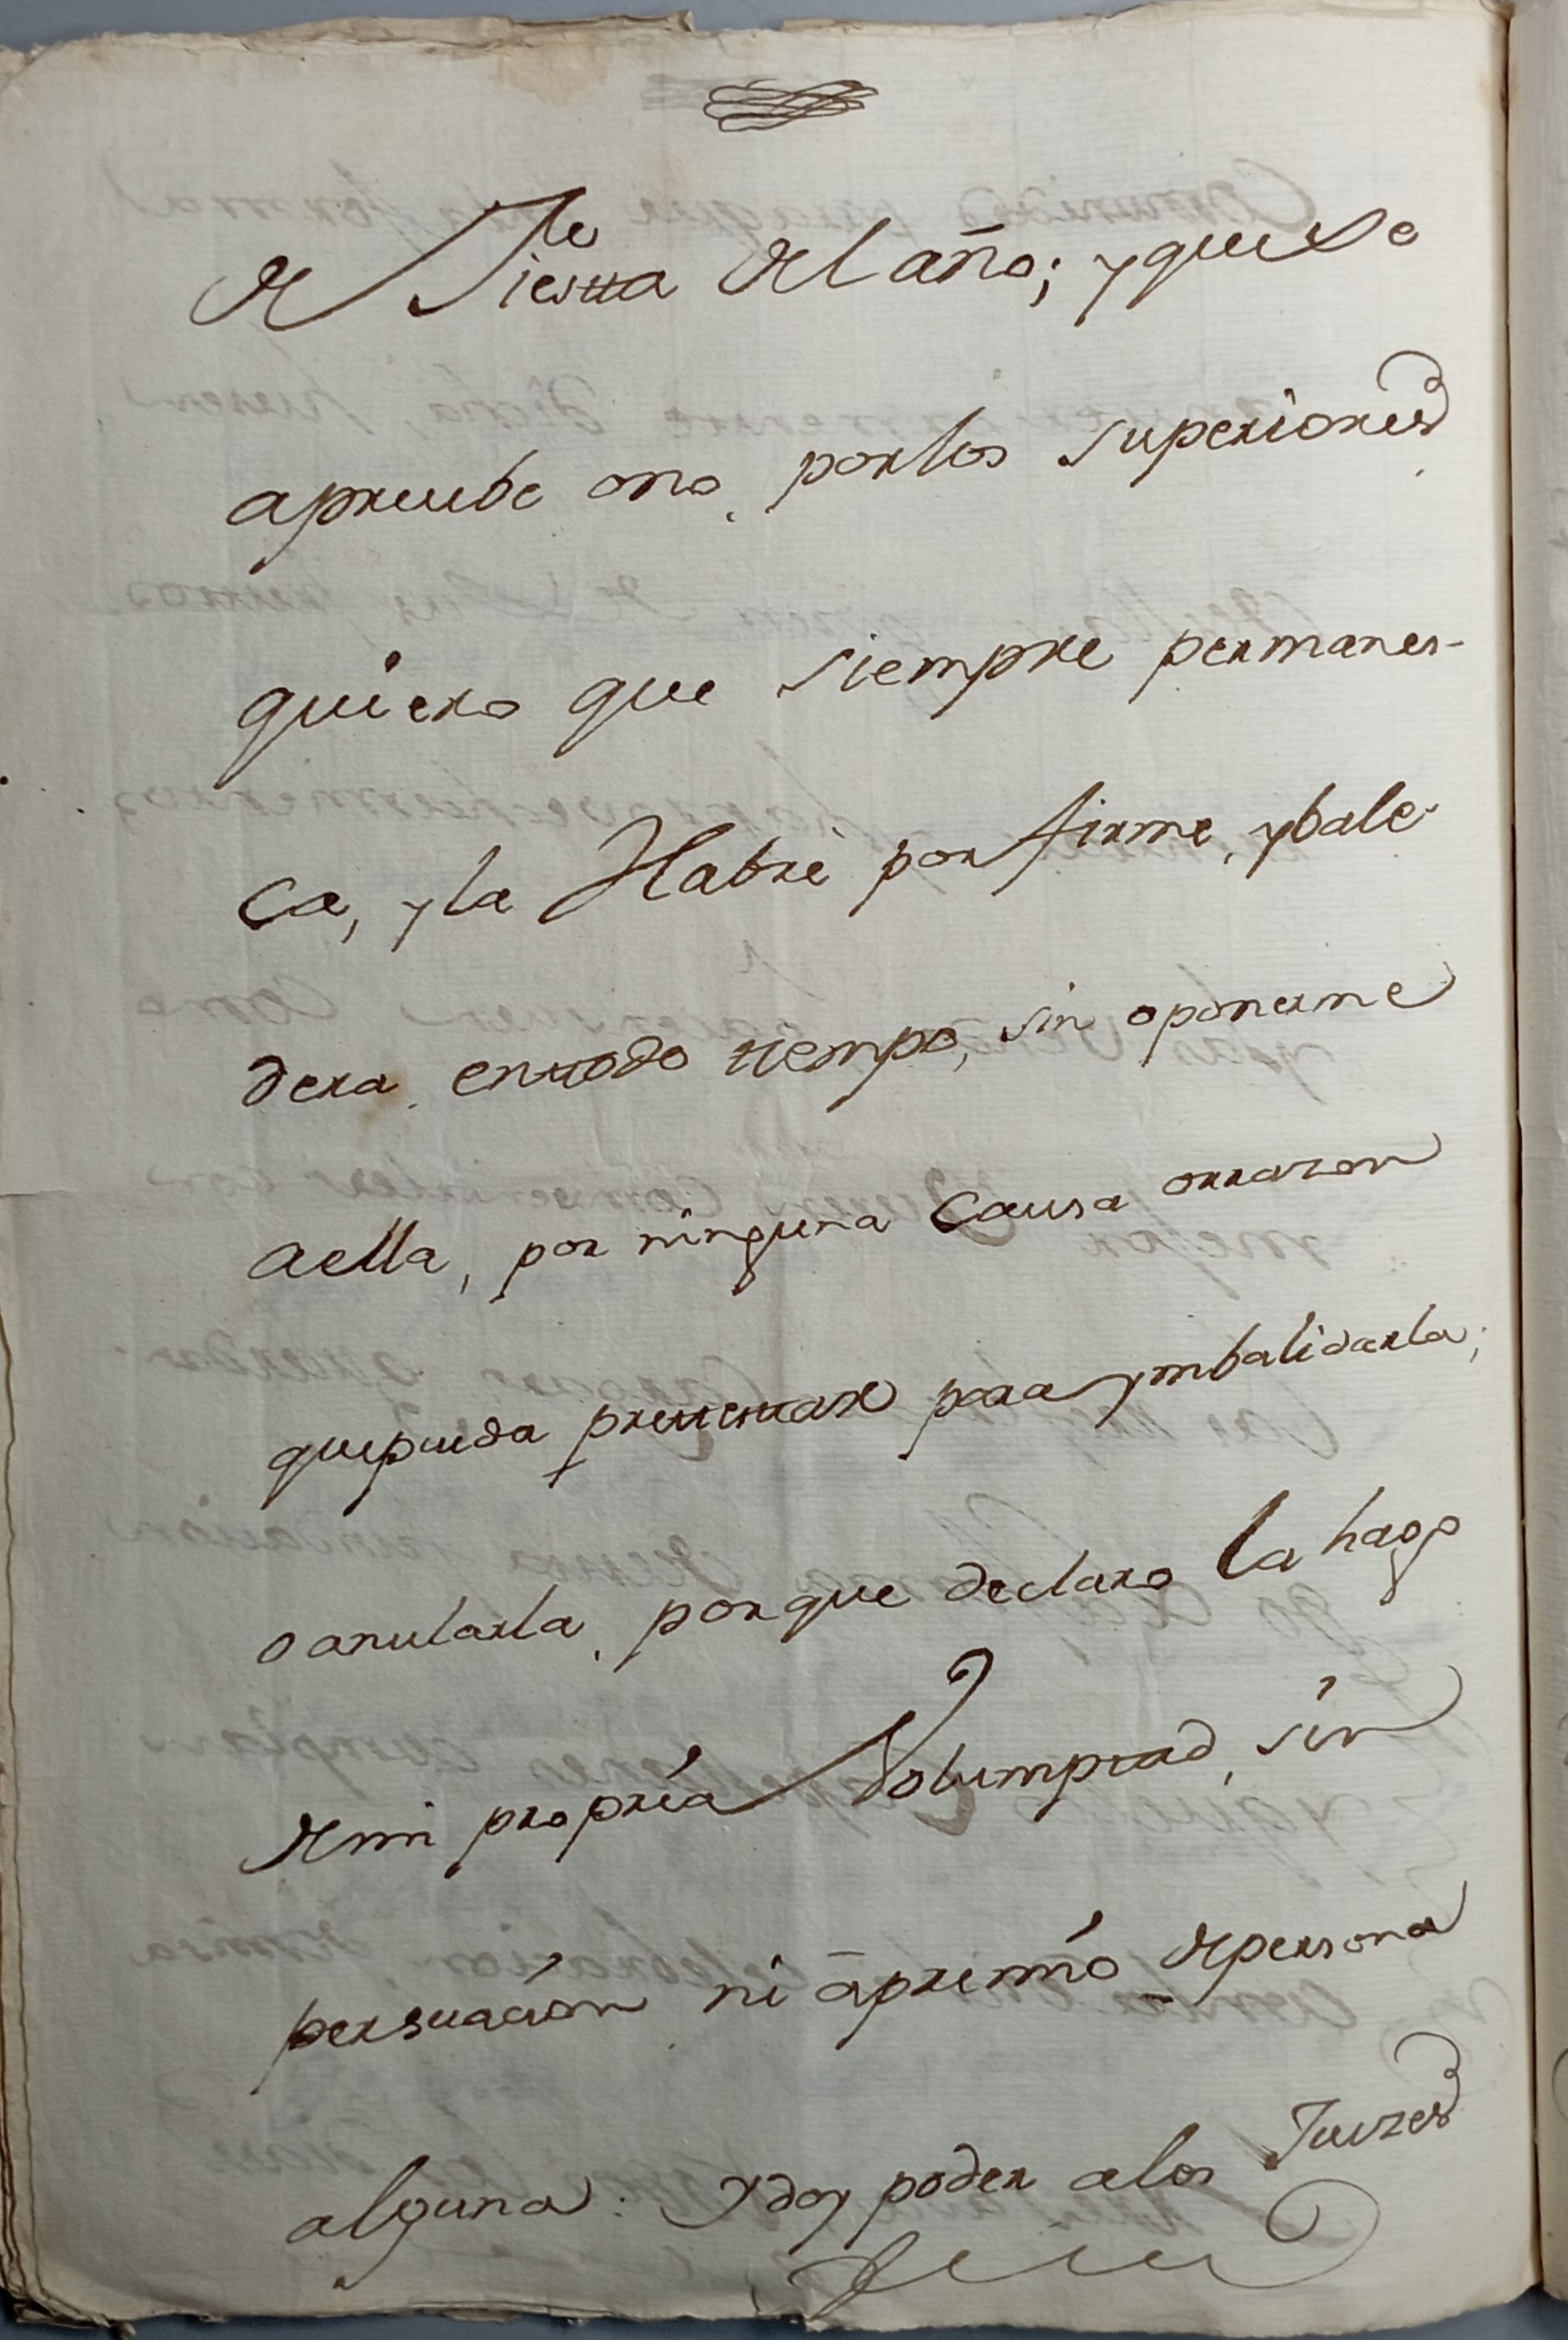 de Fiesta del año; y que se
apruebe ono, porlos superiores
quiero que siempre permanes-
ca, yla Habrè por firme, ybale-
dera, entodo tiempo, sin oponerme
aella, por ninguna Causa orrazon
quepueda pretestar para ymbalidarla;
o anularla, porque declaro la hago
demi propria Volumptad, sin
persuacion ni apremio depersona
alguna: Ydoy poder alos Juezes